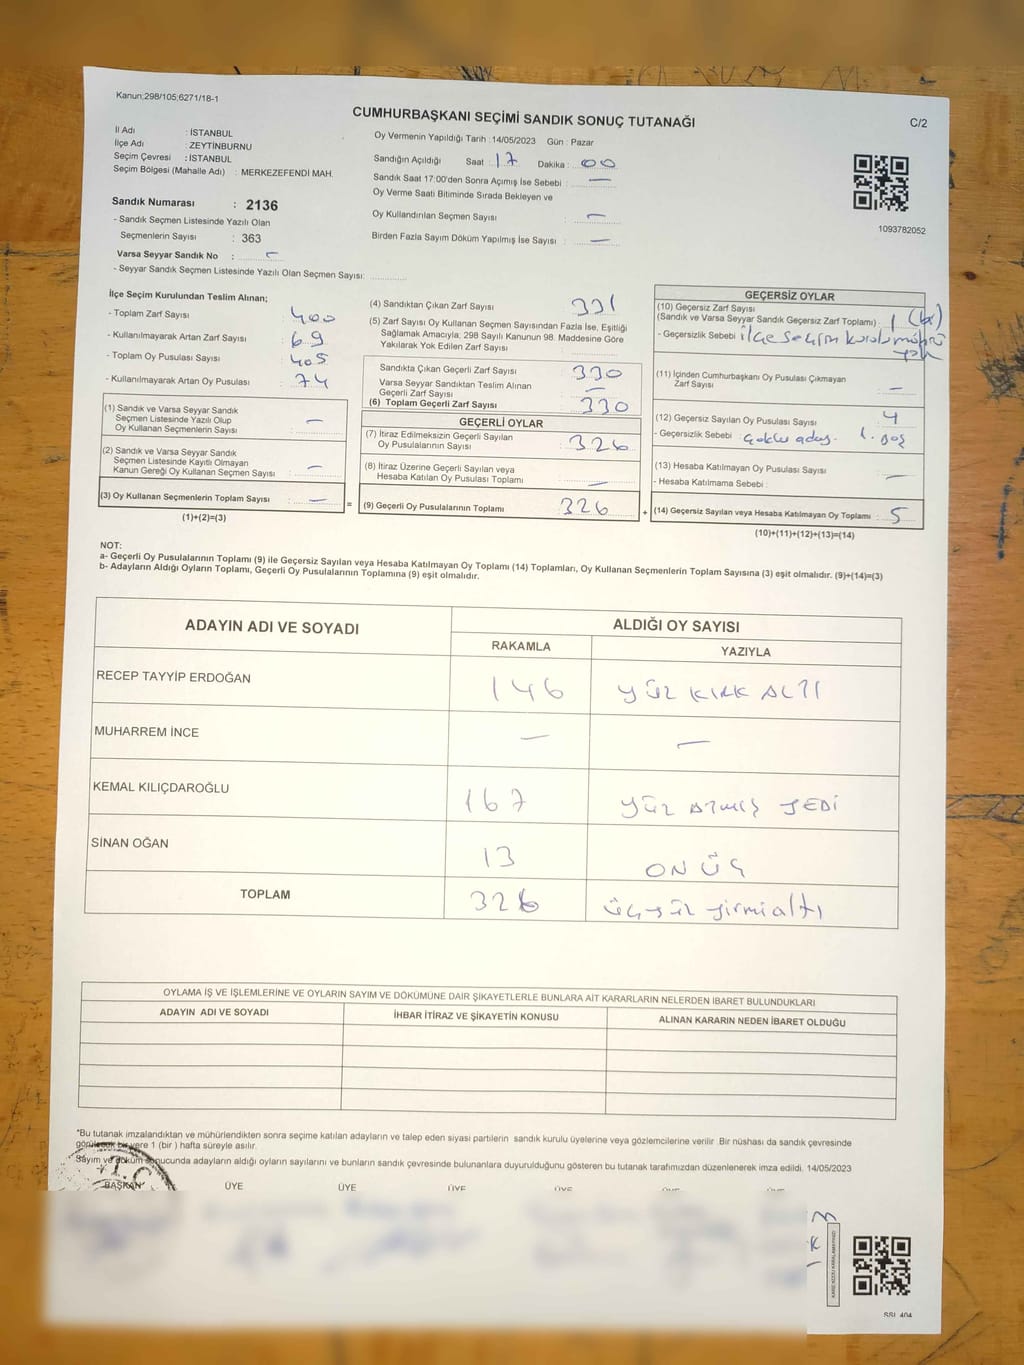 Kanun;298/105;6271/18-1
CUMHURBAŞKANI SEÇİMİ SANDIK SONUÇ TUTANAĞI
C/2
İl Adı : İSTANBUL
İlçe Adı : ZEYTİNBURNU
Seçim Çevresi : İSTANBUL
Seçim Bölgesi (Mahalle Adı) : MERKEZEFENDİ MAH.
Sandık Numarası : 2136
- Sandık Seçmen Listesinde Yazılı Olan
Seçmenlerin Sayısı : 363
Varsa Seyyar Sandık No : -
- Seyyar Sandık Seçmen Listesinde Yazılı Olan Seçmen Sayısı:
Oy Vermenin Yapıldığı Tarih :14/05/2023 Gün : Pazar
Sandığın Açıldığı Saat : 17 Dakika : 00
Sandık Saat 17:00'den Sonra Açımış İse Sebebi : —
Oy Verme Saati Bitiminde Sırada Bekleyen ve
Oy Kullandırılan Seçmen Sayısı : —
Birden Fazla Sayım Döküm Yapılmış İse Sayısı : —
1093782052
İlçe Seçim Kurulundan Teslim Alınan;
- Toplam Zarf Sayısı : 400
- Kullanılmayarak Artan Zarf Sayısı : 69
- Toplam Oy Pusulası Sayısı : 405
- Kullanılmayarak Artan Oy Pusulası : 74
(1) Sandık ve Varsa Seyyar Sandık
Seçmen Listesinde Yazılı Olup
Oy Kullanan Seçmenlerin Sayısı : —
(2) Sandık ve Varsa Seyyar Sandık
Seçmen Listesinde Kayıtlı Olmayan
Kanun Gereği Oy Kullanan Seçmen Sayısı : —
(3) Oy Kullanan Seçmenlerin Toplam Sayısı : —
(1)+(2)=(3)
(4) Sandıktan Çıkan Zarf Sayısı : 331
(5) Zarf Sayısı Oy Kullanan Seçmen Sayısından Fazla İse, Eşitliği
Sağlamak Amacıyla; 298 Sayılı Kanunun 98. Maddesine Göre
Yakılarak Yok Edilen Zarf Sayısı :
Sandıkta Çıkan Geçerli Zarf Sayısı : 330
Varsa Seyyar Sandıktan Teslim Alınan
Geçerli Zarf Sayısı : —
(6) Toplam Geçerli Zarf Sayısı : 330
GEÇERLİ OYLAR
(7) İtiraz Edilmeksizin Geçerli Sayılan
Oy Pusulalarının Sayısı : 326
(8) İtiraz Üzerine Geçerli Sayılan veya
Hesaba Katılan Oy Pusulası Toplamı : —
= (9) Geçerli Oy Pusulalarının Toplamı : 326
GEÇERSİZ OYLAR
(10) Geçersiz Zarf Sayısı
(Sandık ve Varsa Seyyar Sandık Geçersiz Zarf Toplamı) : 1 (bir)
- Geçersizlik Sebebi : ilçe seçim kurulu mührü
yok
(11) İçinden Cumhurbaşkanı Oy Pusulası Çıkmayan
Zarf Sayısı : —
(12) Geçersiz Sayılan Oy Pusulası Sayısı : 4
- Geçersizlik Sebebi : Çoklu aday. 1. boş
(13) Hesaba Katılmayan Oy Pusulası Sayısı : —
- Hesaba Katılmama Sebebi :
+ (14) Geçersiz Sayılan veya Hesaba Katılmayan Oy Toplamı : 5
(10)+(11)+(12)+(13)=(14)
NOT:
a- Geçerli Oy Pusulalarının Toplamı (9) ile Geçersiz Sayılan veya Hesaba Katılmayan Oy Toplamı (14) Toplamları, Oy Kullanan Seçmenlerin Toplam Sayısına (3) eşit olmalıdır. (9)+(14)=(3)
b- Adayların Aldığı Oyların Toplamı, Geçerli Oy Pusulalarının Toplamına (9) eşit olmalıdır.
ADAYIN ADI VE SOYADI ALDIĞI OY SAYISI
RAKAMLA YAZIYLA
RECEP TAYYİP ERDOĞAN 146 YÜZ KIRK ALTI
MUHARREM İNCE — —
KEMAL KILIÇDAROĞLU 167 YÜZ ATMIŞ YEDİ
SİNAN OĞAN 13 ON ÜÇ
TOPLAM 326 üçyüz yirmialtı
OYLAMA İŞ VE İŞLEMLERİNE VE OYLARIN SAYIM VE DÖKÜMÜNE DAİR ŞİKAYETLERLE BUNLARA AİT KARARLARIN NELERDEN İBARET BULUNDUKLARI
ADAYIN ADI VE SOYADI İHBAR İTİRAZ VE ŞİKAYETİN KONUSU ALINAN KARARIN NEDEN İBARET OLDUĞU
*Bu tutanak imzalandıktan ve mühürlendikten sonra seçime katılan adayların ve talep eden siyasi partilerin sandık kurulu üyelerine veya gözlemcilerine verilir .Bir nüshası da sandık çevresinde
görülecek bir yere 1 (bir ) hafta süreyle asılır.
*Sayım ve döküm sonucunda adayların aldığı oyların sayılarını ve bunların sandık çevresinde bulunanlara duyurulduğunu gösteren bu tutanak tarafımızdan düzenlenerek imza edildi. 14/05/2023
T.C.
BAŞKAN ÜYE ÜYE ÜYE ÜYE ÜYE ÜYE
SSI_404